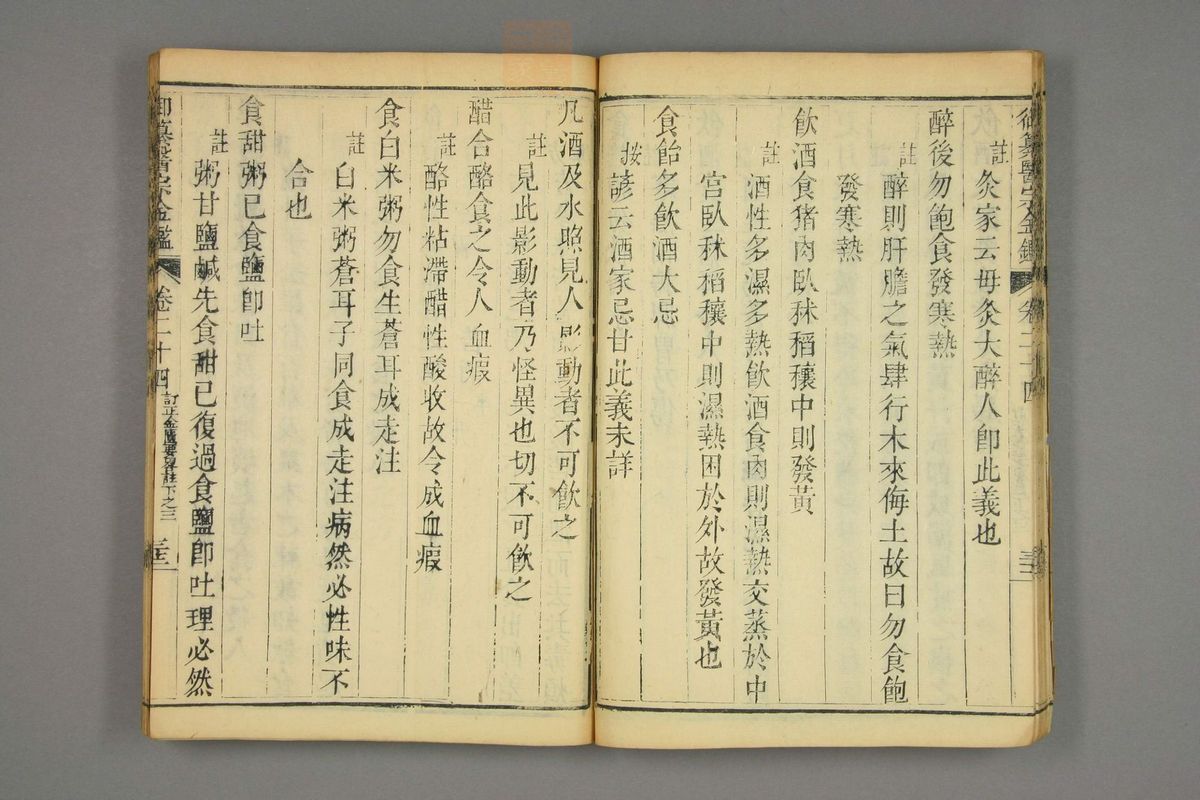 御纂醫宗金鑑 卷二十四
註 灸家云毋灸大醉人卽此義也
醉後勿飽食發寒熱
註 醉則肝膽之氣肆行木來侮土故曰勿食飽
發寒熱
飮酒食猪肉臥秫稻穰中則發黃
註 酒性多濕多熱飮酒食肉則濕熱交蒸於中
宮臥秫稻穰中則濕熱困於外故發黃也
食飴多飮酒大忌
按 諺云酒家忌甘此義未詳
凡酒及水照見人影動者不可飮之
註 見此影動者乃怪異也切不可飮之
醋合酪食之令人血瘕
註 酪性粘滯醋性酸收故令成血瘕
食白米粥勿食生蒼耳成走注
註 白米粥蒼耳子同食成走注病然必性味不
合也
食甜粥已食鹽卽吐
註 粥甘鹽鹹先食甜已復過食鹽卽吐理必然
御纂醫宗金鑑 卷二十四 訂正金匱要畧註下之三